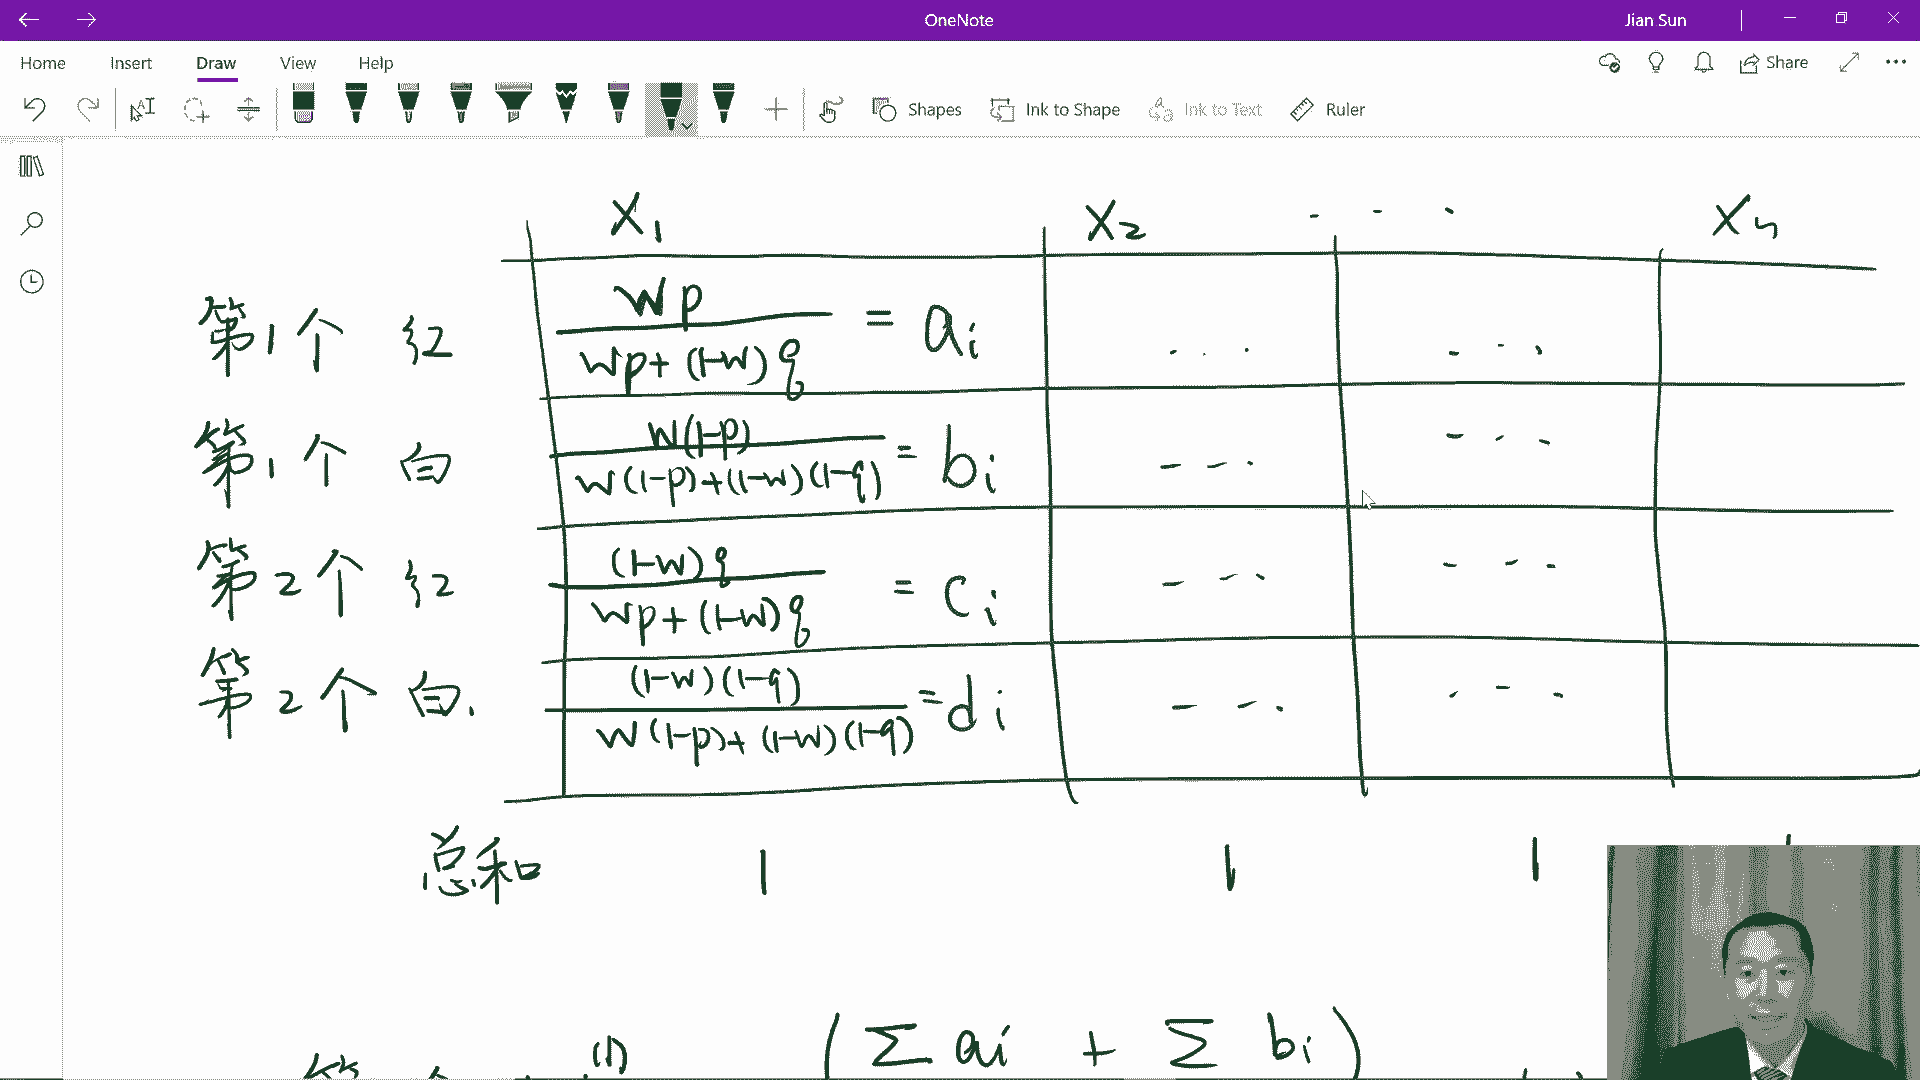 OneNote
Jian Sun
Home Insert Draw View Help
Share
Shapes Ink to Shape Ink to Text Ruler
X₁ X₂ · · · Xₙ
第1个 红 wp / wp+(1-w)q = aᵢ · · · · · ·
第1个 白 w(1-p) / w(1-p)+(1-w)(1-q) = bᵢ · · · · · ·
第2个 红 (1-w)q / wp+(1-w)q = cᵢ · · · · · ·
第2个 白. (1-w)(1-q) / w(1-p)+(1-w)(1-q) = dᵢ · · · · · ·
总和 1 1 1
(1) (Σ aᵢ + Σ bᵢ)